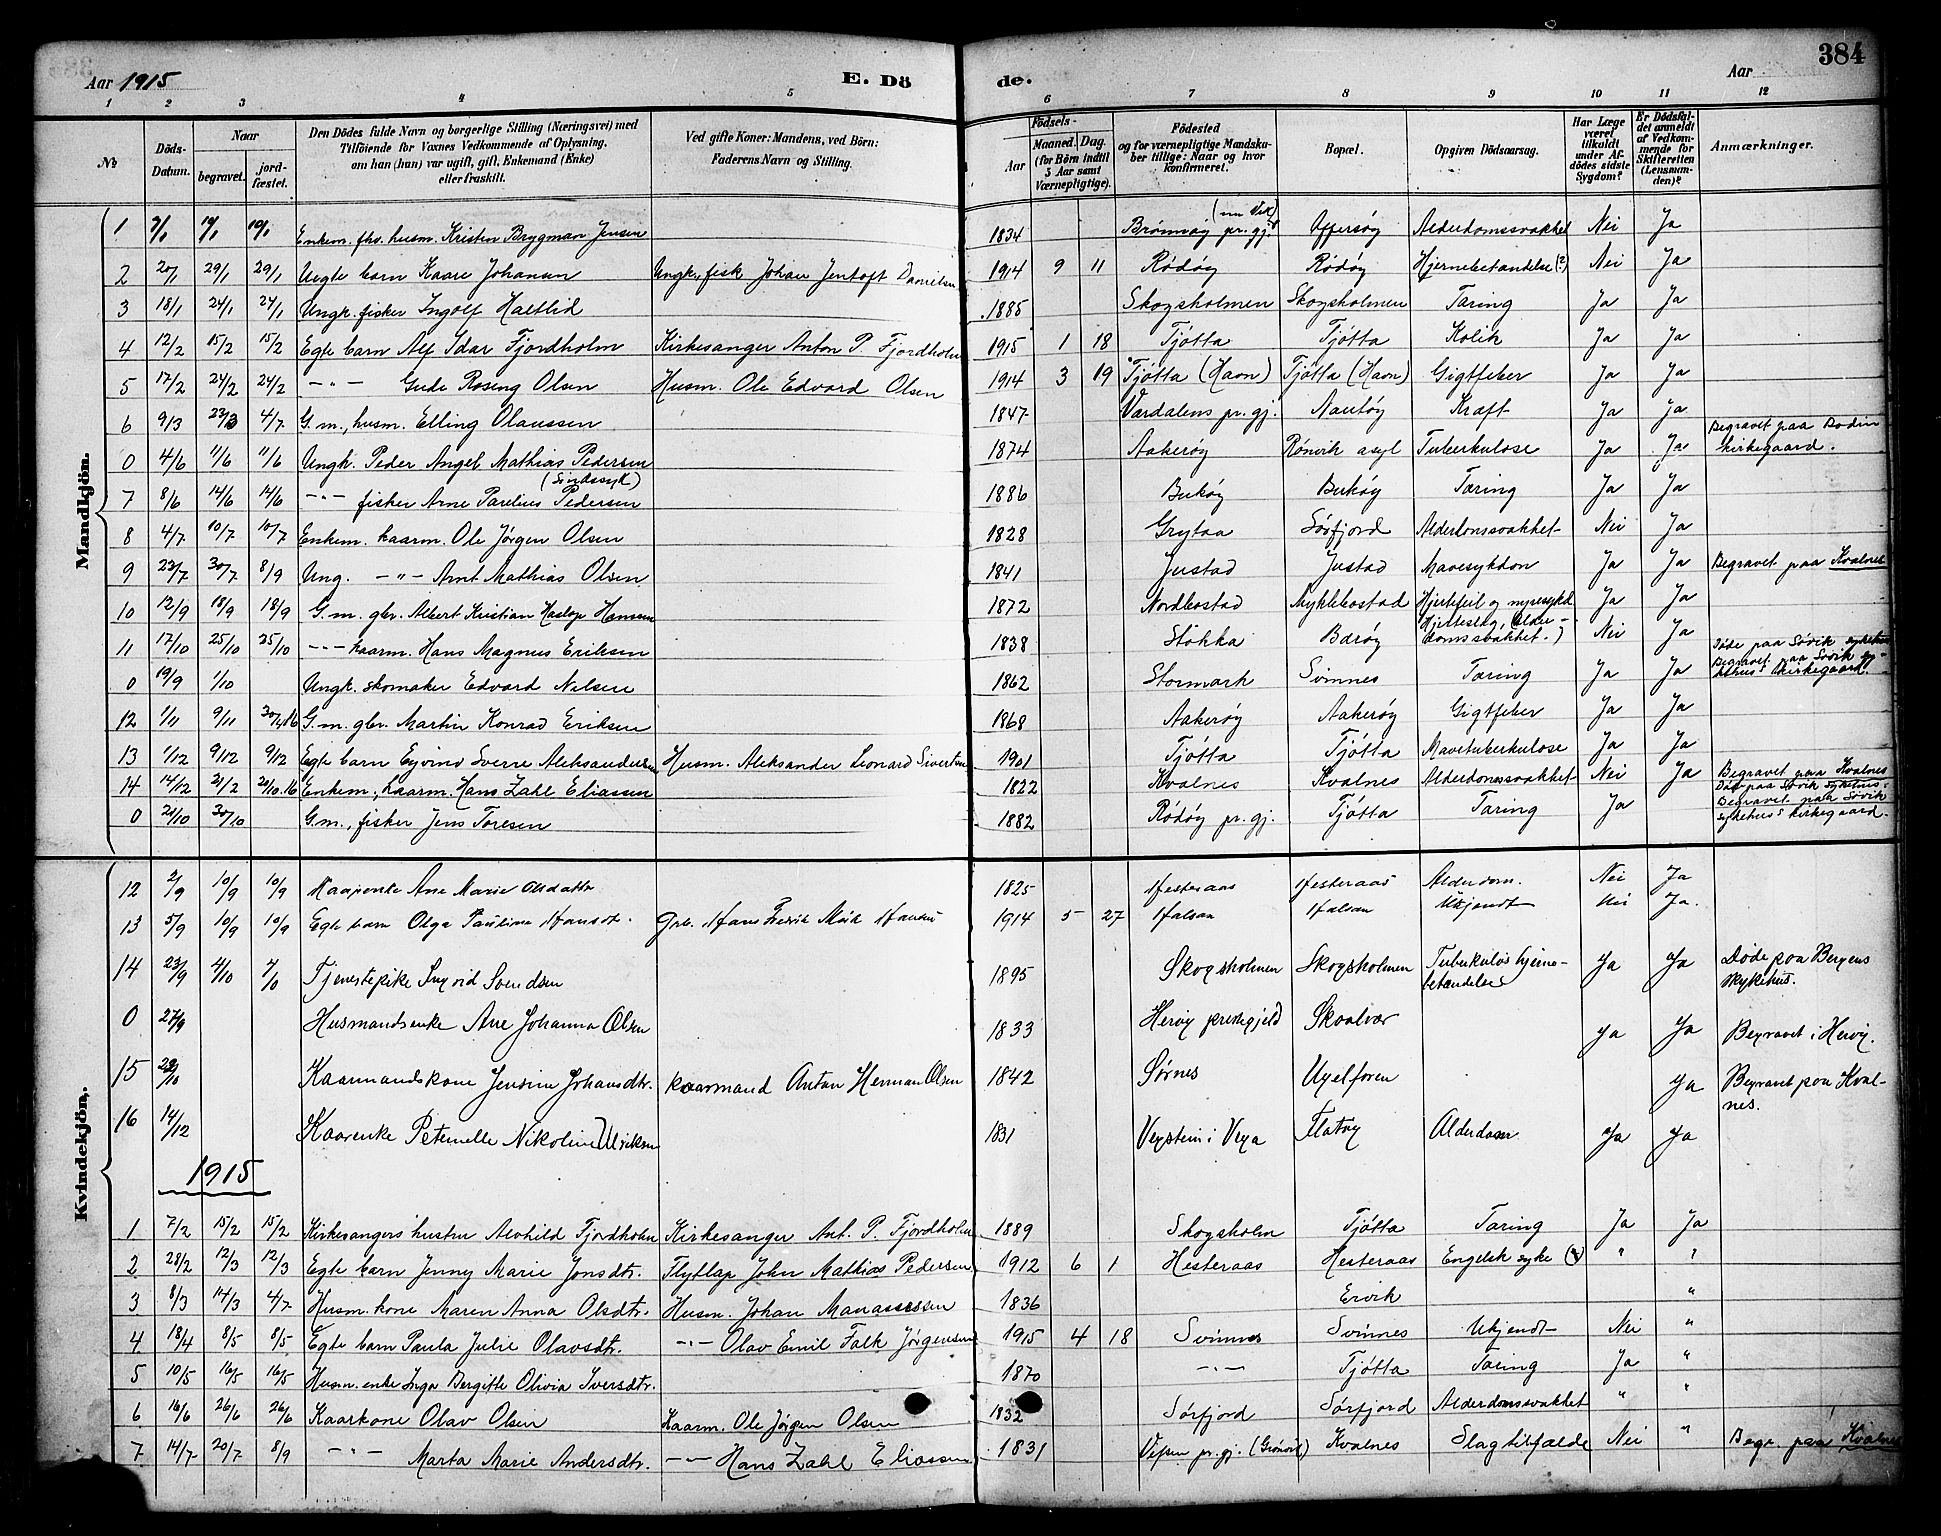 384
Aar 1915 E. Döde. Aar
1 2 3 4 5 6 7 8 9 10 11 12
№ Döds-Datum. Naar begravet. jord-fæstet. Den Dödes fulde Navn og borgerlige Stilling (Næringsvei) med Tilföiende for Voxnes Vedkommende af Oplysning, om han (hun) var ugift, gift, Enkemand (Enke) eller fraskilt. Ved gifte Koner: Mandens, ved Börn: Faderens Navn og Stilling. Födsels- Aar Maaned. Dag. (for Börn indtil 5 Aar samt Værnepligtige). Födested og for værnepligtige Mandskaber tillige: Naar og hvor konfirmeret. Bopæl. Opgiven Dödsaarsag. Har Læge været tilkaldt under Afdödes sidste Sygdom? Er Dödsfaldet anmeldt af Vedkommende for Skifteretten (Lensmanden)? Anmærkninger.
Mandkjön.
1 Enkem. fhv. husm. Kristen Brygman Jensen 1834 Brønnøy pr. gj. Offersøy Alderdomssvakhet Nei Ja
2 20/1 29/1 29/1 Uegte barn Kaare Johansen Ungk. fisk Johan Jentoft Danielsen 1914 9 11 Rödöy Rödöy Hjernebetændelse (?) Nei Ja
3 18/1 24/1 24/1 Ungk. fisker Ingolf Haltlid 1885 Skogsholmen Skogsholmen Tæring Ja Ja
4 12/2 15/2 15/2 Egte barn Alf Idar Fjordholm Kirkesanger Anton P. Fjordholm 1915 1 18 Tjøtta Tjøtta Kolik Ja Ja
5 17/2 24/2 24/2 —"— Gude Rosing Olsen Husm. Ole Edvard Olsen 1914 3 19 Tjøtta (Havn) Tjøtta (Havn) Gigtfeber Ja Ja
6 9/3 23/3 4/7 G. m., husm. Elling Olaussen 1847 Værdalens pr. gj. Nautøy Kræft Ja Ja
0 4/6 11/6 11/6 Ungk. Peder Angel Mathias Pedersen (Sindssyk) 1874 Aakerøy Rönvik asyl Tuberkulose Ja Ja Begravet paa Bodin kirkegaard.
7 8/6 14/6 14/6 —"— fisker Arne Parelius Pedersen 1886 Bukøy Bukøy Tæring Ja Ja
8 4/7 10/7 10/7 Enkem. kaarm. Ole Jørgen Olsen 1828 Grytaa Sörfjord Alderdomssvakhet Nei Ja
9 23/7 30/7 8/9 Ung. —"— Arnt Mathias Olsen 1841 Justad Justad Mavesykdom Ja Ja Begravet paa Kvalnes
10 12/9 18/9 18/9 G. m. gbr. Albert Kristian Haslop Hansen 1872 Nordbostad Myklebostad Hjertefeil og nyresykd Ja Ja
11 17/10 25/10 25/10 —"— kaarm. Hans Magnus Eriksen 1838 Stokka Barøy Hjerteslag, (alderdomssvakhet.) Nei Ja
0 19/9 1/10 Ungk. skomaker Edvard Nilsen 1862 Stormark Svinnes Tæring Ja Ja Døde paa Søvik sykehus Begravet paa Søvik sykehus' kirkegaard.
12 1/11 9/11 G. m. gbr. Martin Konrad Eriksen 1868 Aakerøy Aakerøy Gigtfeber Ja Ja
13 1/12 9/12 9/12 Egte barn Eyvind Sverre Aleksandersen Husm. Aleksander Leonard Sivertsen 1901 Tjøtta Tjøtta Mavetuberkulose Ja Ja
14 14/12 21/2 Enkem., kaarm. Hans Zahl Eliassen 1822 Kvalnes Kvalnes Alderdomssvakhet Nei Ja Begravet paa Kvalnes
0 21/10 30/10 G. m., fisker Jens Toresen 1882 Rödöy pr. gj. Tjøtta Tæring Ja Död paa Søvik sykehus. Begravet paa Søvik sykehus' kirkegaard.
Kvindekjön.
12 2/9 10/9 10/9 Ane Marie Olsdattr 1825 Hesteraas Hesteraas Alderdom. Nei Ja
13 5/9 10/9 10/9 Egte barn Olga Pauline Hansdt. Grb. Hans Fredrik Hansen 1914 5 27 Ukjendt Nei Ja.
14 23/9 4/10 Tjenestepike Ingrid Svendsen 1895 Skogsholmen Skogsholmen Tuberkuløs hjernebetændelse Ja Ja Døde paa Bergens sykehus.
0 27/9 Husmandsenke Ane Johanna Olsen 1833 Herøy prestegjeld Skaalvær Ja Ja Begravet i Herøy.
15 Kaarmandskone Jensine Johansdtr. kaarmand Anton Herman Olsen 1842 Sørnes Ugelforen Ja Begravet paa Kvalnes.
16 14/12 Kaarenke Peternelle Nikoline Ulriksen 1831 Vegstein i Vega Flatøy Alderdom Ja Ja
1915
1 7/2 15/2 15/2 Kirkesangers hustru Alvhild Fjordholm Kirkesanger Ant. P. Fjordholm 1889 Skogsholm Tjøtta Tæring Ja Ja
2 28/2 12/3 12/3 Egte barn Jenny Marie Jonsdtr. Flytlap John Mathias Pedersen 1912 6 1 Hesteraas Hesteraas Engelsk syke (?) " "
3 8/3 14/3 4/7 Husm. kone Maren Anna Olsdtr. Husm. Johan Manassessen 1836 Ervik "
4 18/4 8/5 8/5 Egte barn Paula Julie Olavsdtr. —"— Olav Emil Falk Jörgensen 1915 4 18 Svinnes Svinnes Ukjendt Nei "
5 10/5 16/5 16/5 Husm. enke Inga Bergitte Olivia Iversdtr. 1870 —"— Tjøtta Tæring Ja "
6 16/6 26/6 26/6 Kaarkone Olav Olsen Kaarm. Ole Jørgen Olsen 1832 Sörfjord Sörfjord Alderdomssvakhet " "
7 14/7 20/7 8/9 —"— Marta Marie Andersdtr. —"— Hans Zahl Eliassen 1831 Vefsen pr. gj. Kvalnes Slagtilfælde Nei " Begr. paa Kvalnes